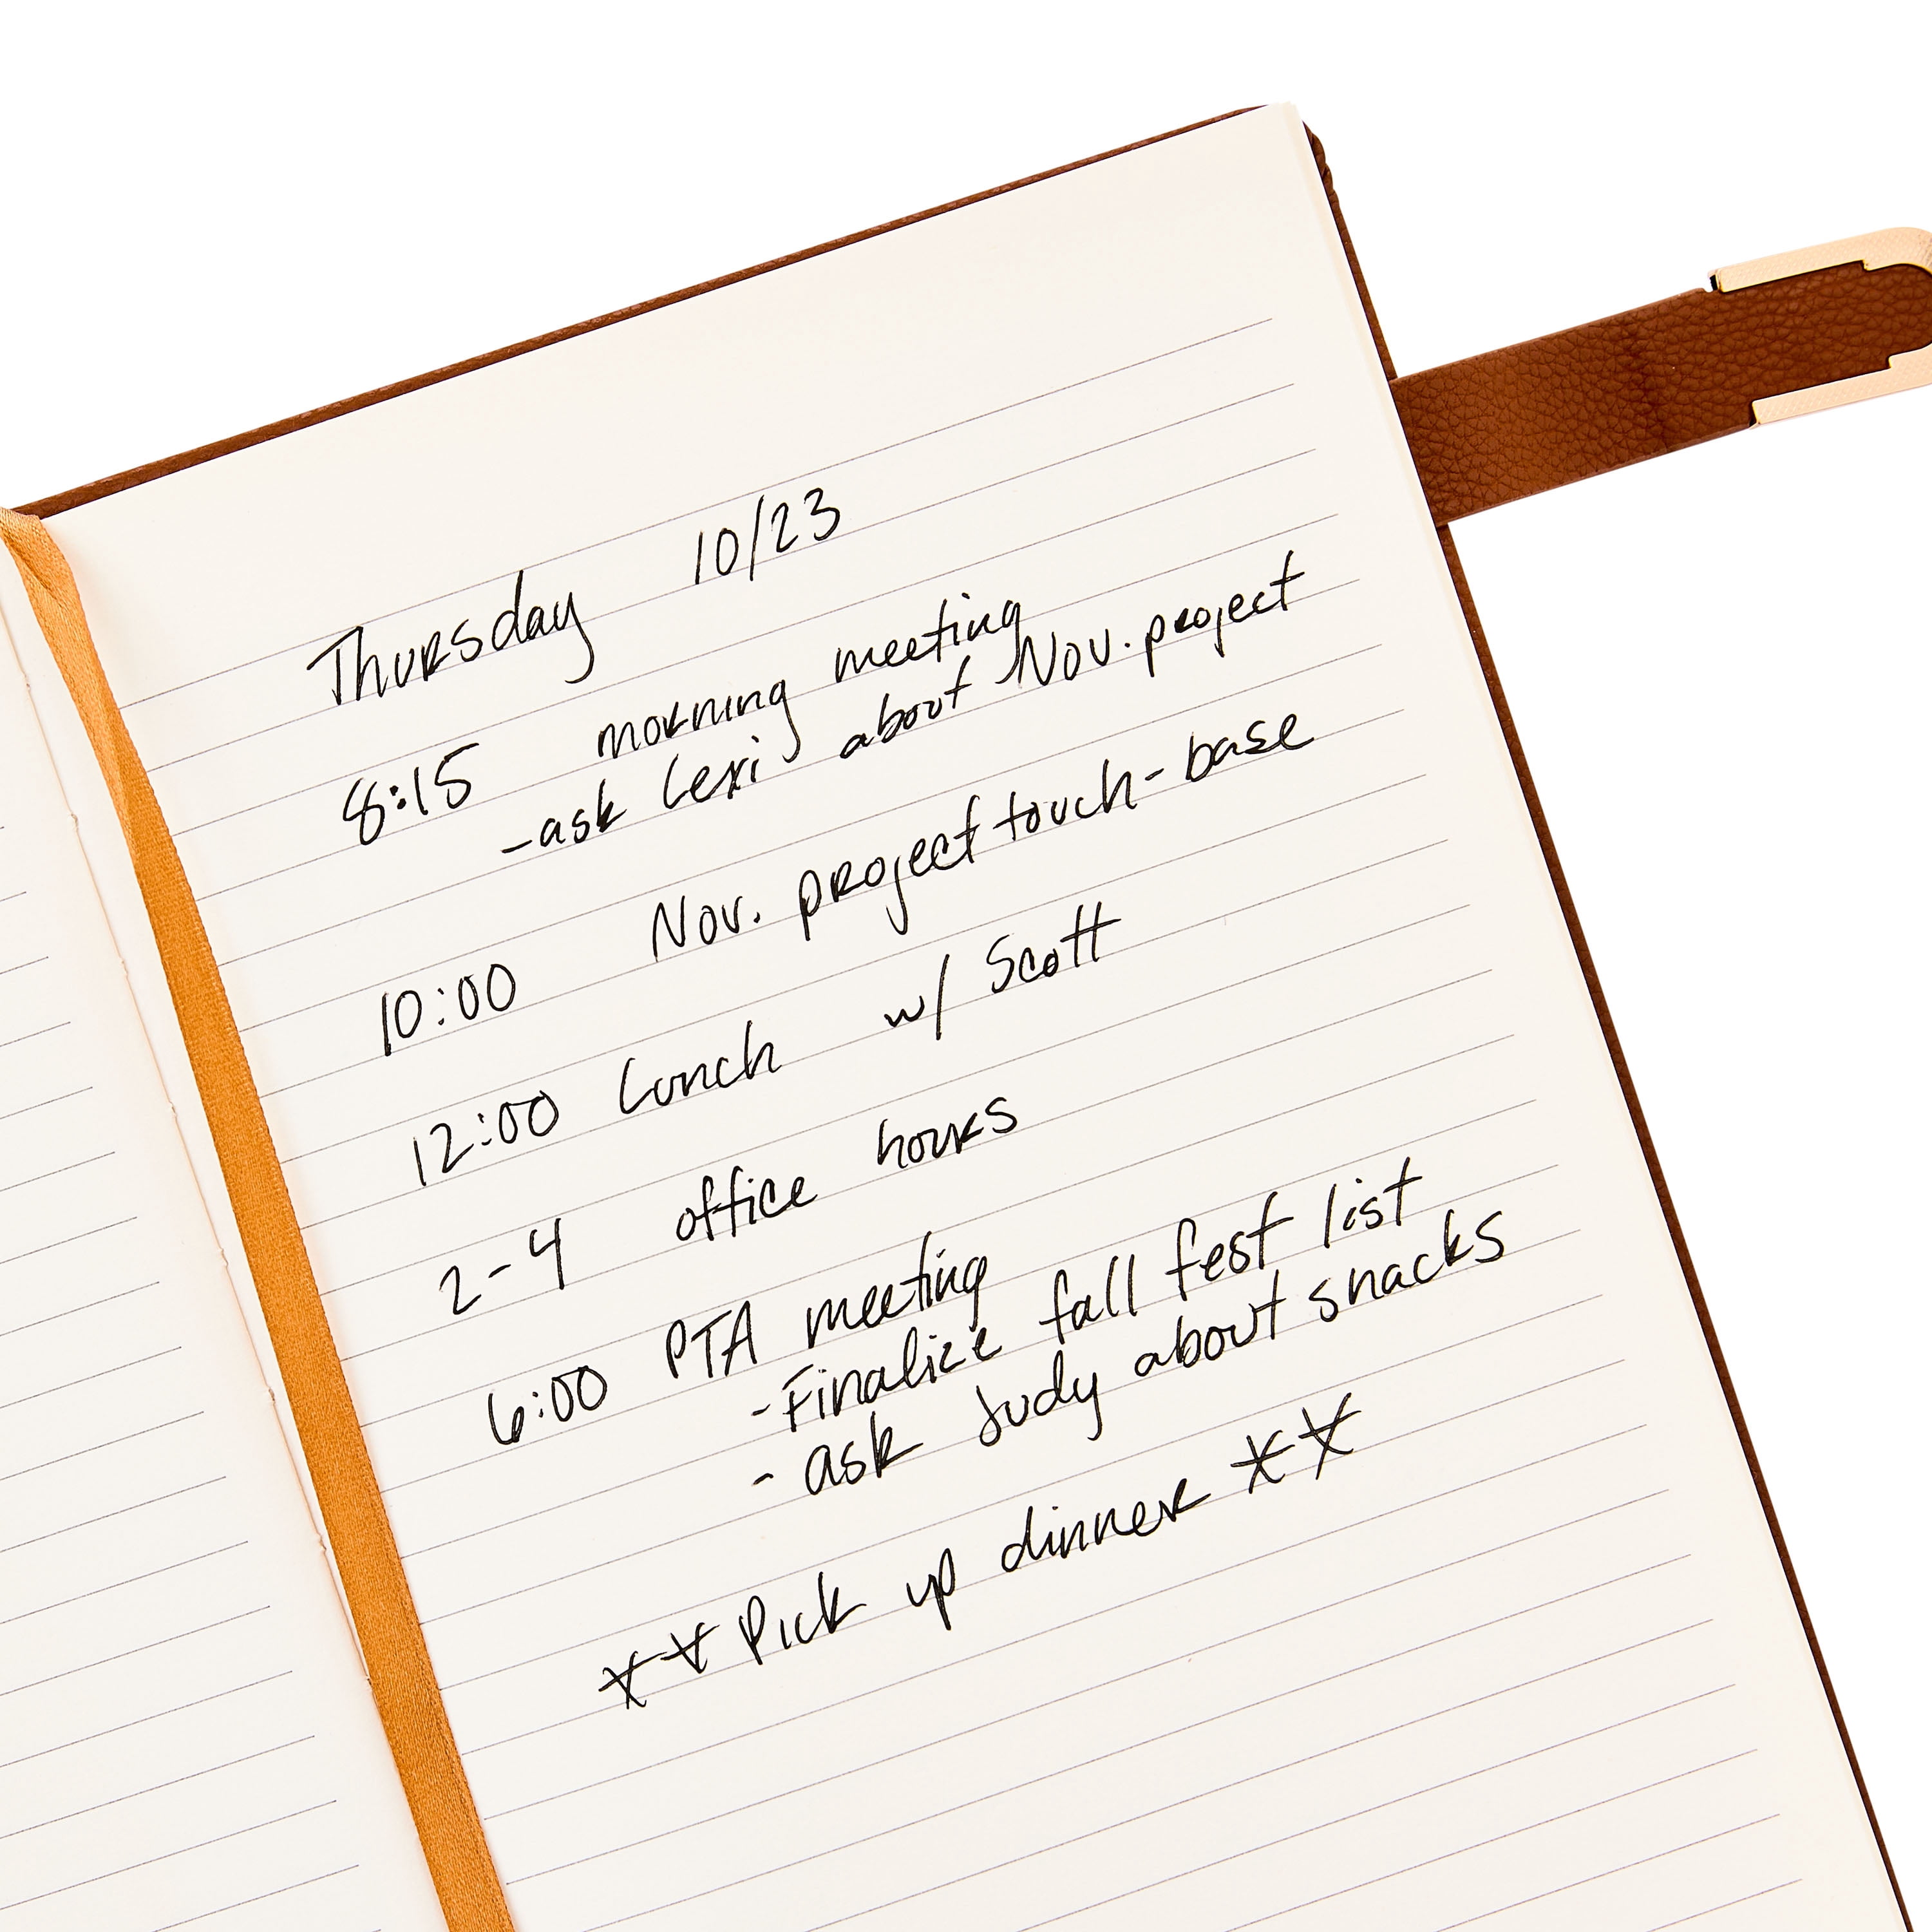 Thursday 10/23
8:15 morning meeting
-ask Lexi about Nov. project
10:00 Nov. project touch-base
12:00 Lunch w/ Scott
2-4 office hours
6:00 PTA meeting
-Finalize fall fest list
- ask Judy about snacks
** Pick up dinner **